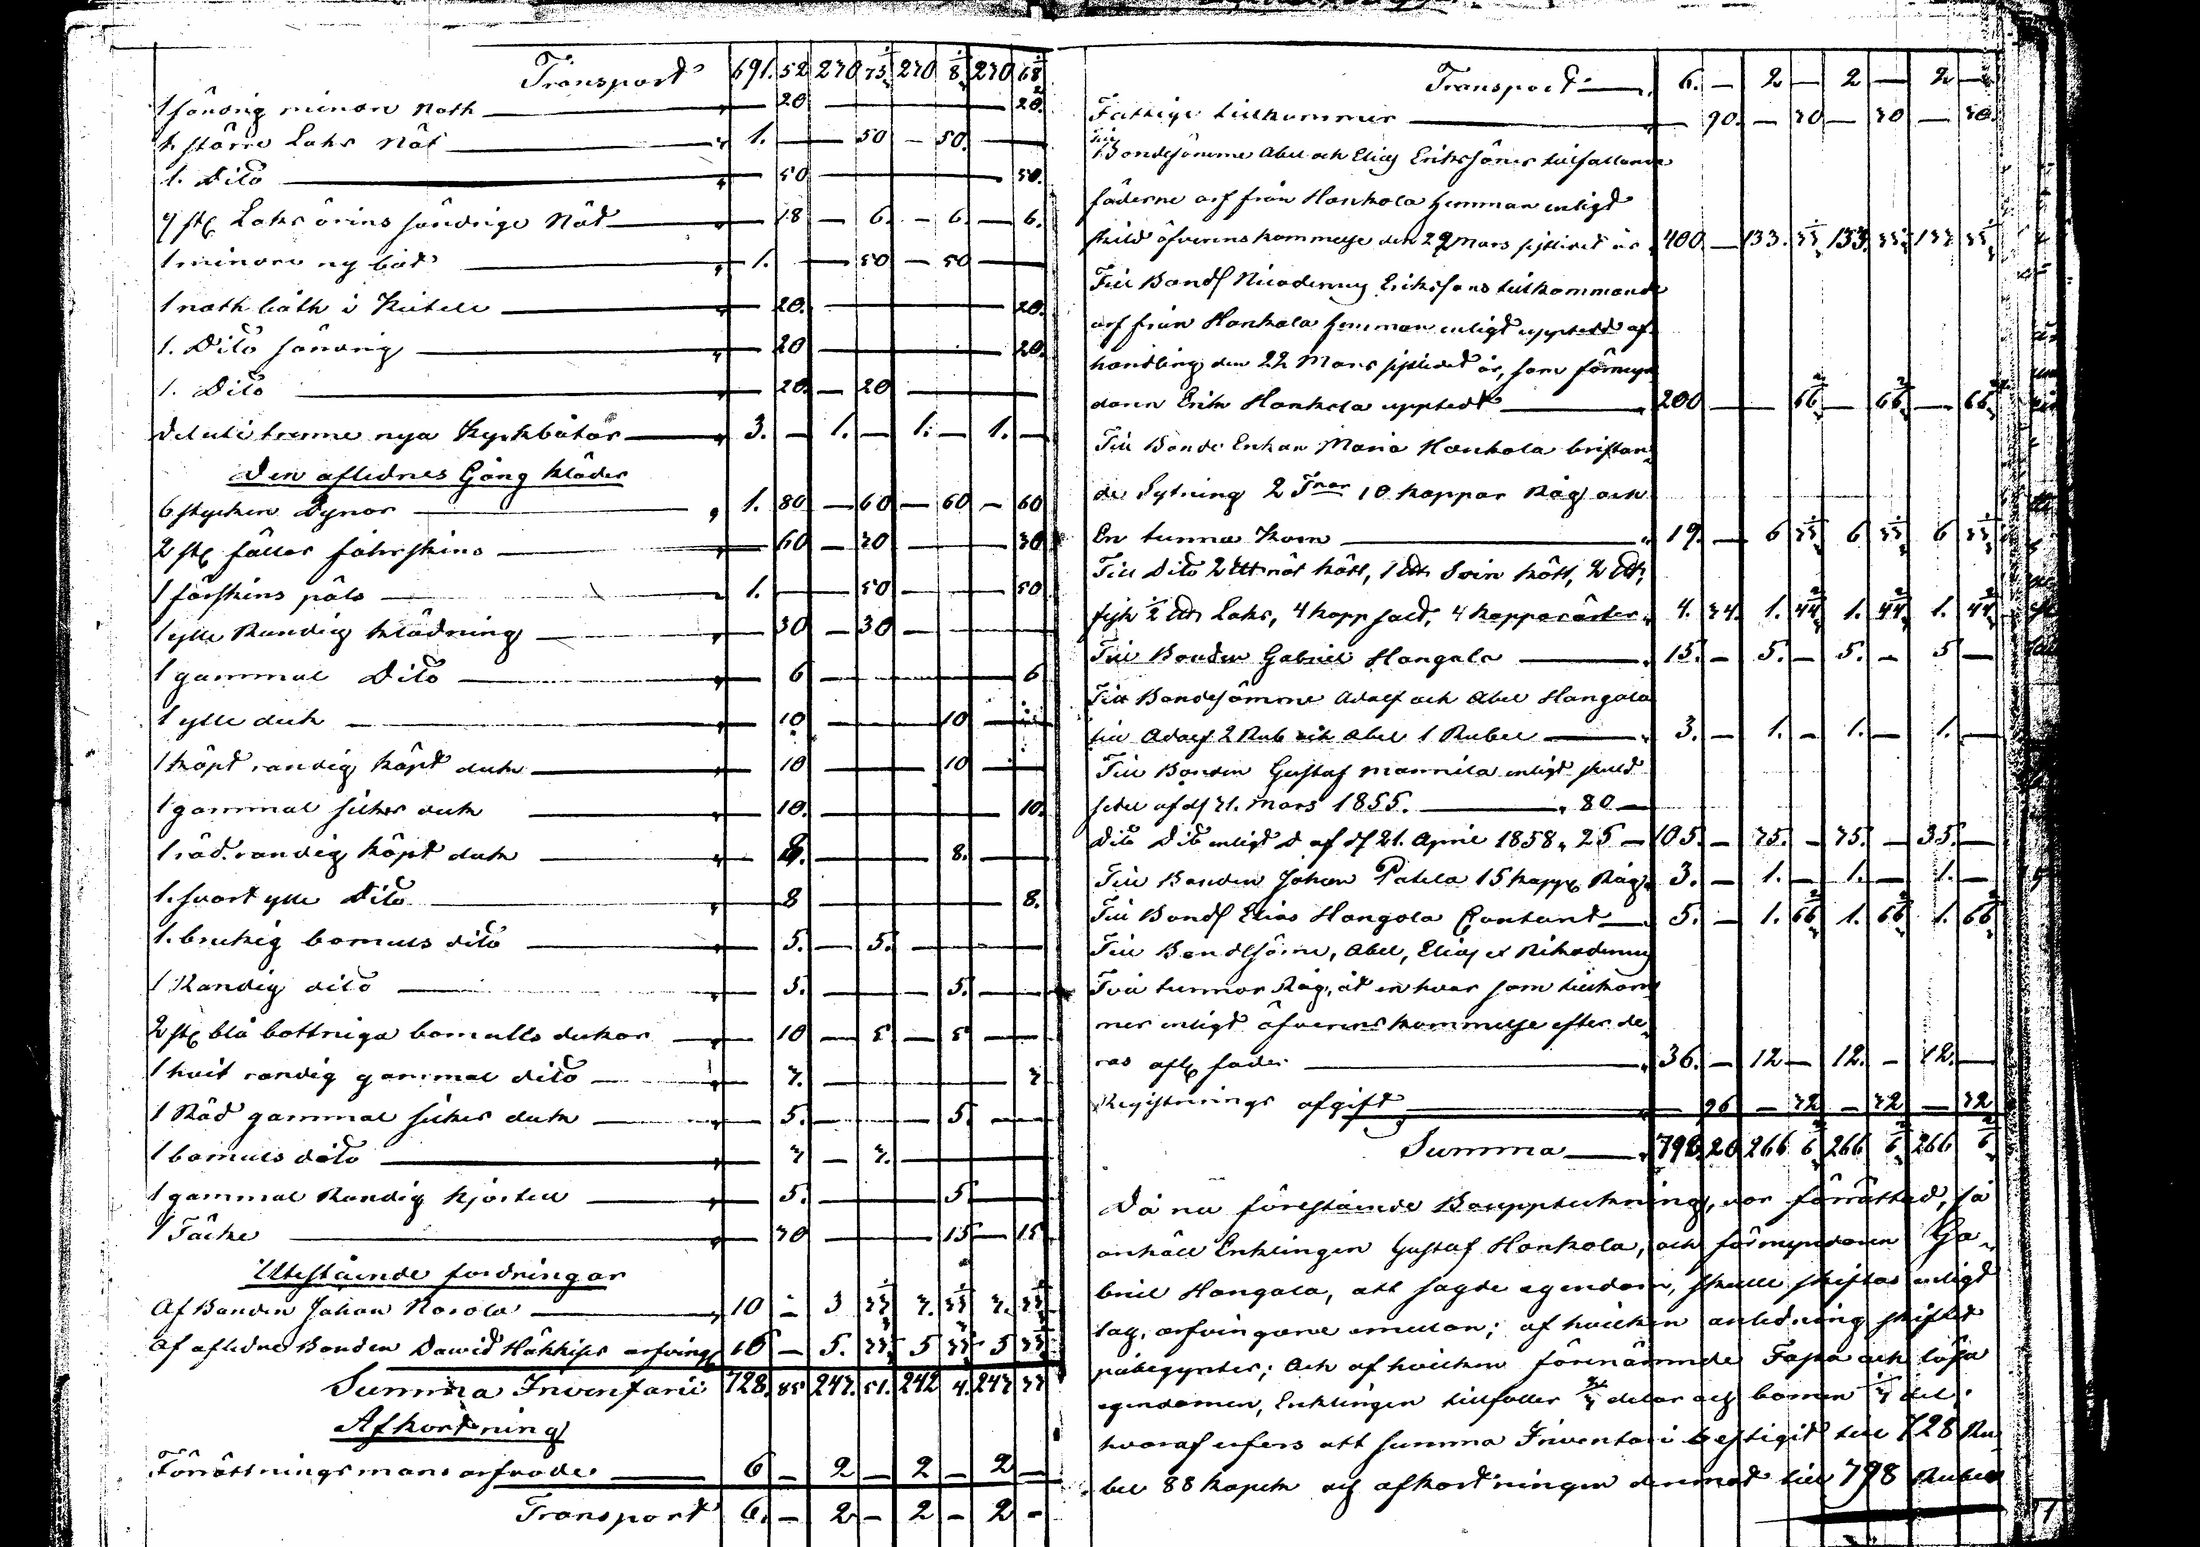 Transport 691. 52 230 75 230 8 230 68
1 söndrig minore noth — 20 — 20.
1 större Lahs Nät — 1. — 50 — 50.
1. Dito — 50 — 50.
7 st Lahs örins söndrige Nät — 18 — 6. — 6. — 6.
1 minore ny båt — 1. — 50 — 50
1 noth båth i — 20. — 20.
1. Dito söndrig — 20 — 20.
1. Dito — 20. — 20
deluti trenne nya Kyrkbåtar — 3. — 1. — 1. — 1. —
Den aflednes Gång kläder
6 stycken Dynor — 1. 80 — 60 — 60 — 60
2 st fällar fåhrskins — 60 — 30 — 30
1 fårskins päls — 1. — 50 — 50
1 ylle Randig klädning — 30 — 30 —
1 gammal Dito — 6 — 6
1 ylle duk — 10 — 10 —
1 köpt randig köpt duk — 10 — 10 —
1 gammal silkes duk — 10. — 10.
1 röd randig köpt duk — 8. — 8.
1. svart ylle Dito — 8 — 8.
1. brukig bomuls dito — 5. — 5.
1 Randig dito — 5. — 5. —
2 st blå bottniga bomulls dukar — 10 — 5 — 5 —
1 hvit randig gammal dito — 3. — 3
1 Röd gammal silkes duk — 5. — 5. —
1 bomuls dito — 3 — 3. —
1 gammal Randig kjortel — 5. — 5
1 Täcke — 30 — 15 — 15
Utestående fordringar
Af Bonden Johan — 10 — 3 33 3. 33 3. 33
Af aflidne Bonden Dawid arfving 16 — 5. 33 5 33 5 33
Summa Inventarii 728. 88 243. 51. 242 4. 243 33
Afkortning
Förrättningsmans arfvode — 6 — 2 — 2 — 2 —
Transport 6. — 2 — 2 — 2 —
Transport — 6. — 2 — 2 — 2 —
Fattige tillkommer — 90. — 30 — 30 — 30.
Till Bondesönerne Abel och Elias Erikssöner tilfallande
fäderne arf från Honkola hemman enligt
skild öfverenskommelse den 29 Mars sistlidet år 400 — 133. 33 133 33 133 33
Till Bonds Nicodemus Erikssons tillkommande
arf från Honkola hemman enligt upptedd af
handling den 22 Mars sistlidet år, som förmyn
daren Erik Honkola upptedt — 200 — 66 — 66 — 66
Till Bonde Enkan Maria Honkola bristan
de Sytning 2 Tnor 10 kappar Råg och
En tunna Korn — 19. — 6 33 6 33 6 33
Till Dito 2 nöt kött, 1 Svin kött, 2
fisk ½ Lahs, 4 kapp salt, 4 kappar ärter 4. 34. 1. 44 1. 44 1. 44
Till Bonden Gabriel Hangala — 15. — 5. — 5. — 5 —
Till Bondesönerne Adolf och Abel Hangala
till Adolf 2 Rub och Abel 1 Rubel — 3. — 1. — 1. — 1. —
Till Bonden Gustaf Mannila enligt skuld
sedel af d 31. Mars 1855. — 80 —
Dito Dito enligt D af d 21. April 1858 25 — 105. — 35. — 35. — 35. —
Till Bonden Johan 15 kapp Råg 3. — 1. — 1. — 1. —
Till Bond Elias Hangola Contant — 5. — 1. 66 1. 66 1. 66
Till Bondsöne, Abel, Elias et Nikodemus
Två tunnor Råg, åt en hvar som tillkom
mer enligt öfverenskommelse efter de
ras afl fader — 36. — 12 — 12. — 12. —
Registrerings afgift — 96 — 32 — 32 — 32
Summa — 798. 20 266 6 266 6 266 6
Då nu förestående Bouppteckning, var förrättad, så
anhöll Enklingen Gustaf Honkola, och förmyndaren Ga-
briel Hangala, att sagde egendom, skulle skiftas enligt
lag, arfvingarne emellan; af hvilken anledning skiftet
påbegyntes; Och af hvilken förenämnde Fasta och lösa
egendomen, Enklingen tillfaller 2/3 delar och barnen 1/3 del:
hvaraf erfers att summa Inventari bestigit till 728 Ru
bel 88 kopek och afkortningen deremot till 798 Rubel